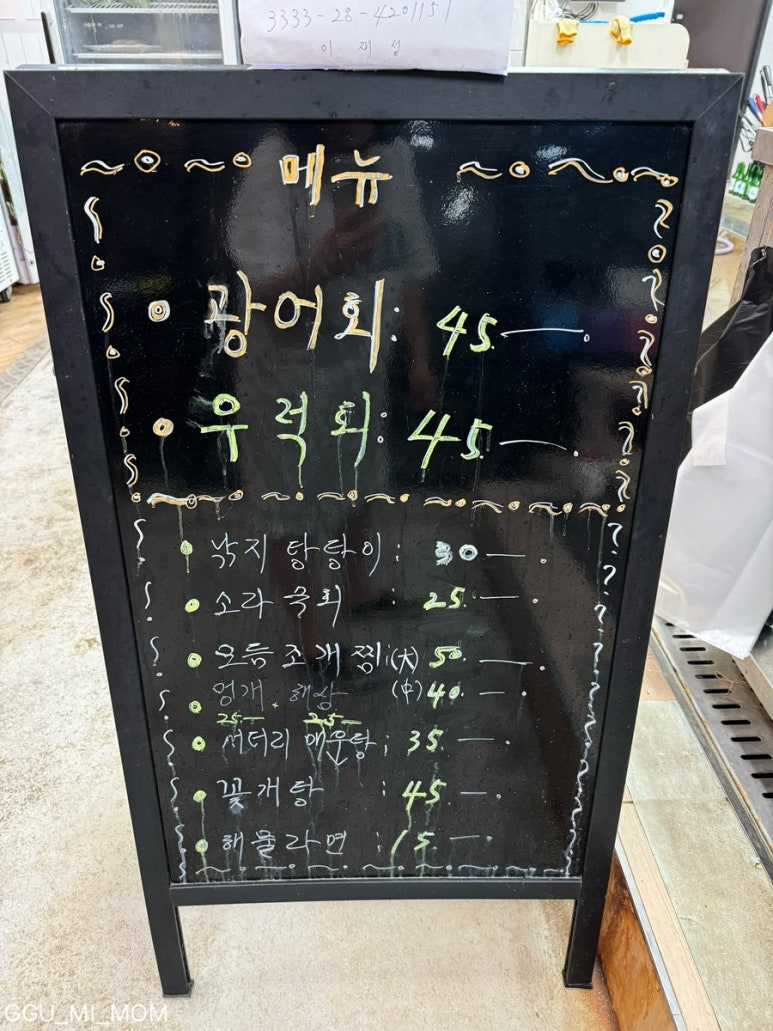 3333-28-4201151
이재성
메뉴
광어회: 45 —.
우럭회: 45 —.
낙지탕탕이: 30 —.
소라숙회: 25 —.
모듬조개찜:(大) 50 —.
멍개. 해삼 (中) 40 —.
25— 25—
서더리매운탕; 35 —.
꽃개탕: 45 —.
해물라면: 15 —.
GGU_MI_MOM